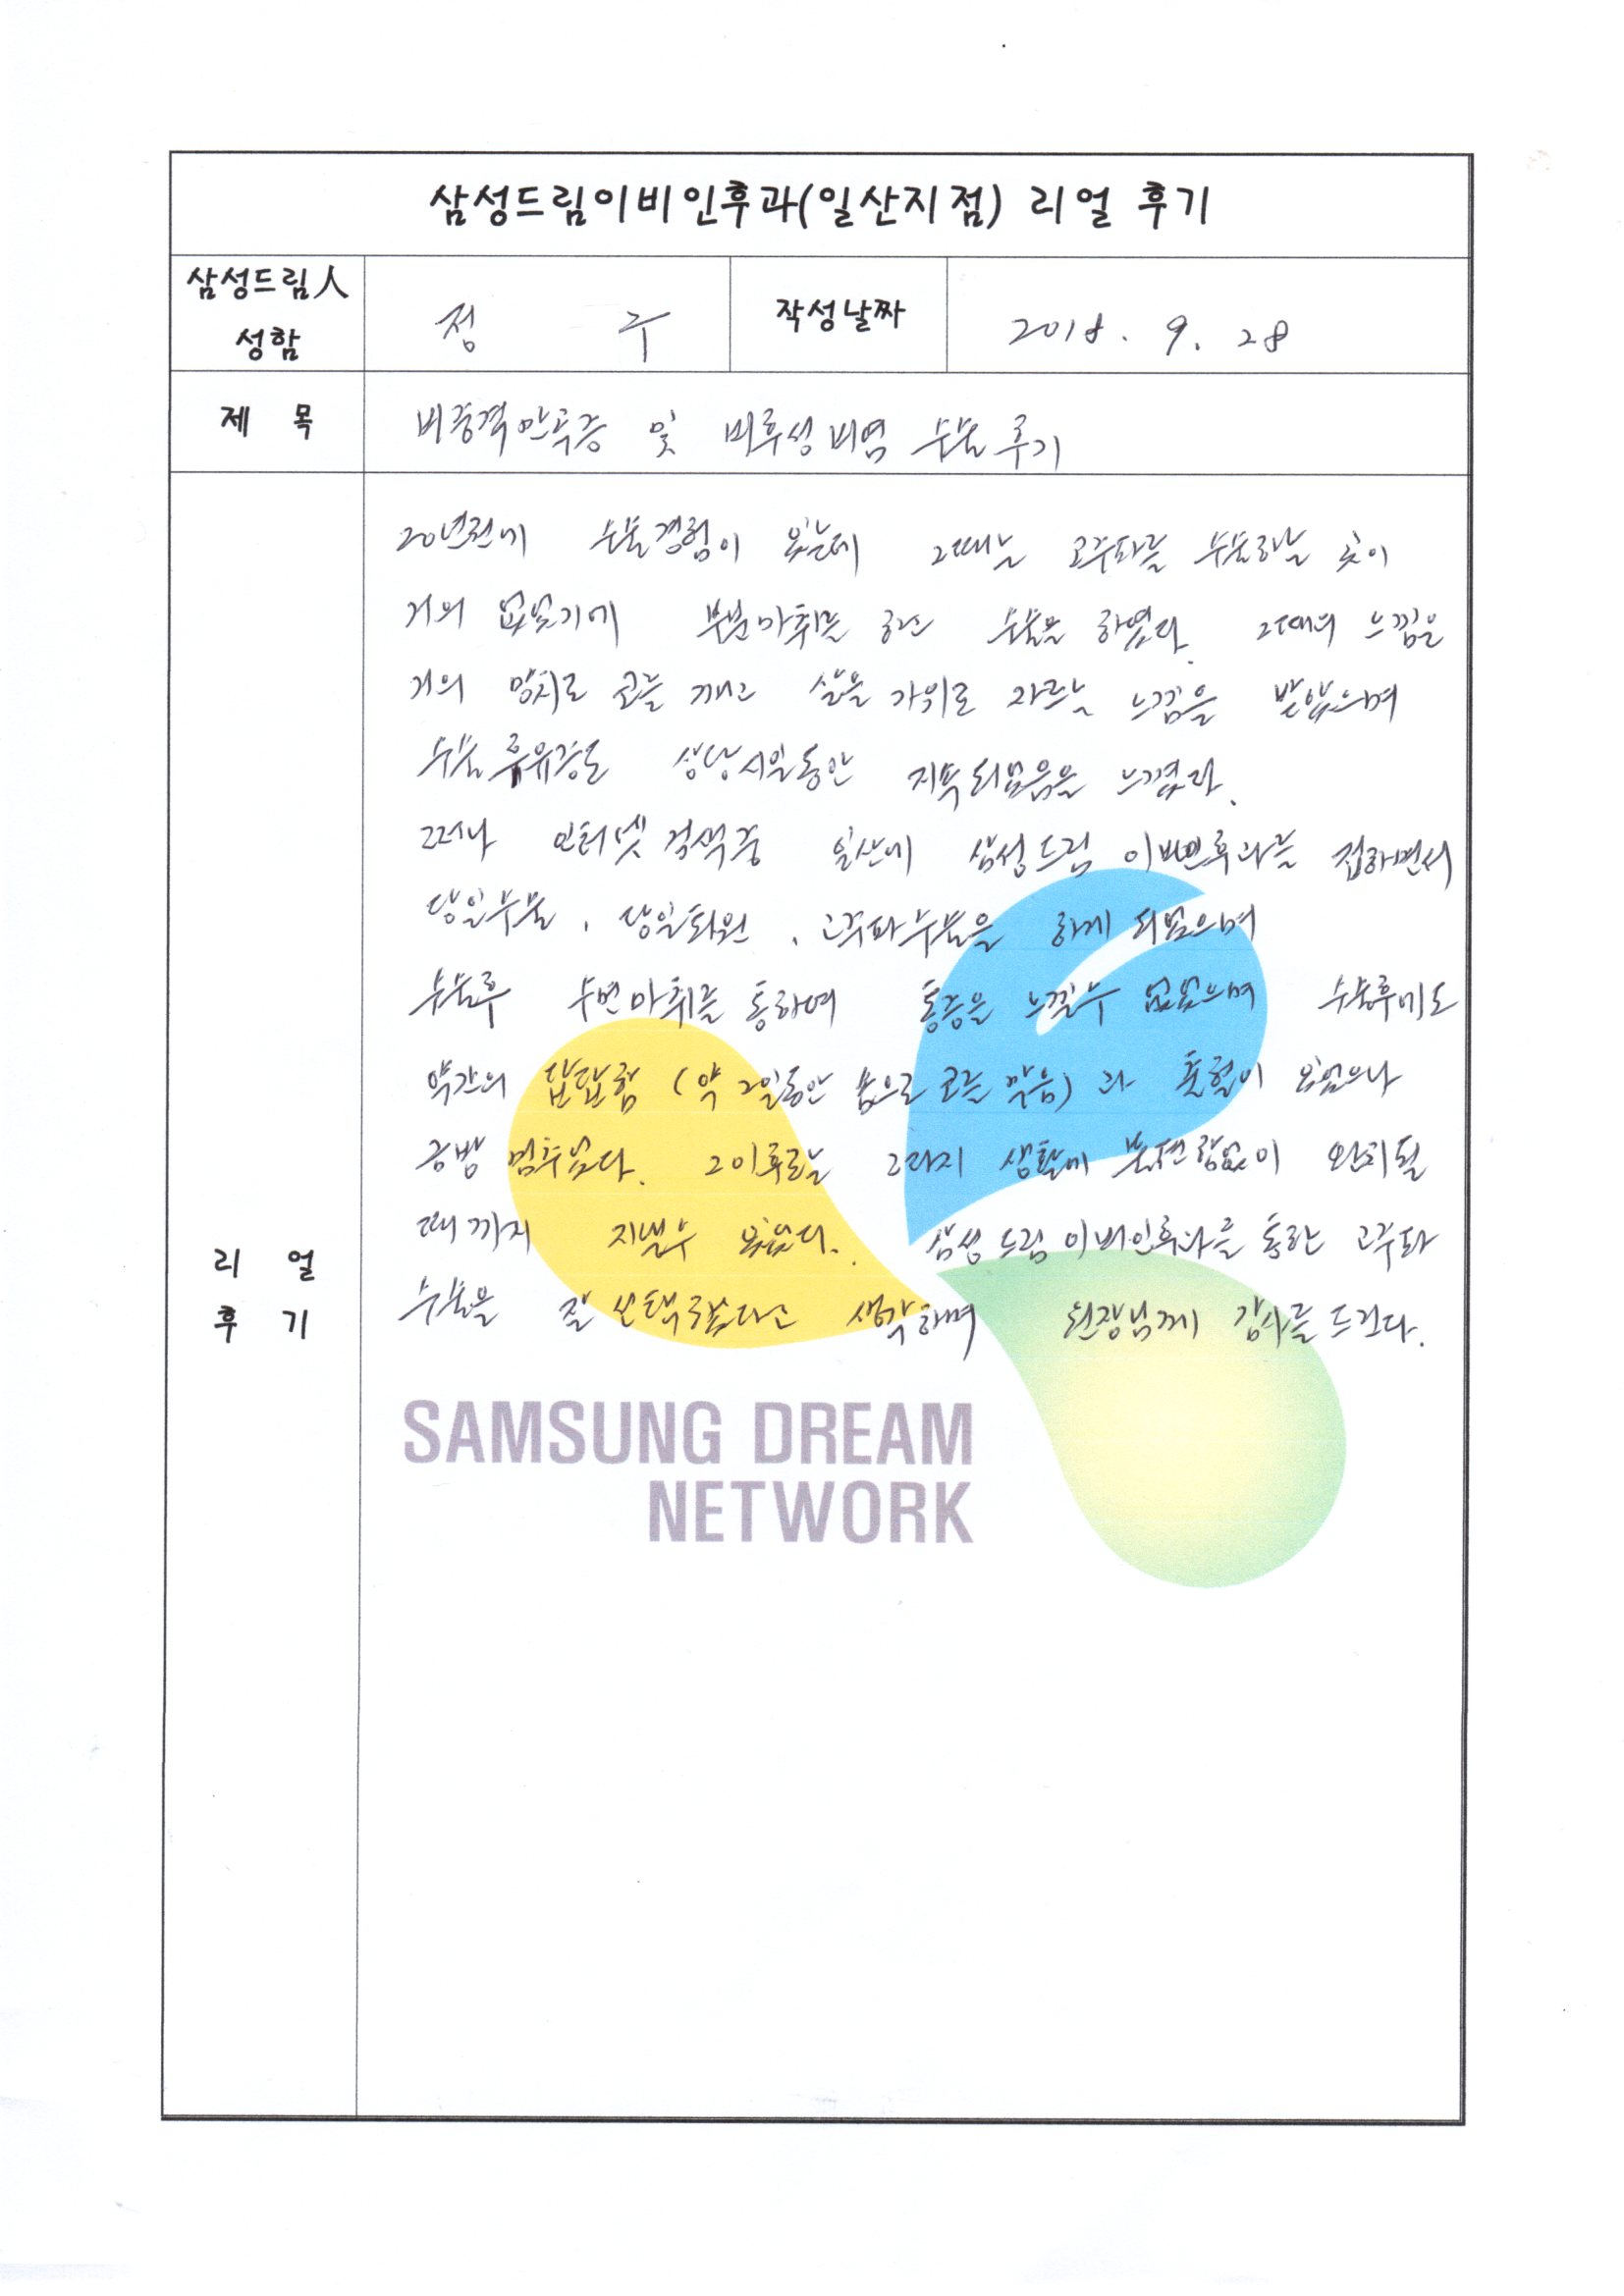 삼성드림이비인후과(일산지점) 리얼 후기
삼성드림人
성함
정 구
작성날짜
2018. 9. 28
제 목
비중격만곡증 및 비후성비염 수술후기
20년전에 수술경험이 있는데 그때는 고주파를 수술하는 곳이
거의 없었기에 부분마취를 하고 수술을 하였다. 그때의 느낌은
거의 망치로 코를 깨고 살을 가위로 자르는 느낌을 받았으며
수술 후유증도 상당시일동안 지속되었음을 느꼈다.
그러나 인터넷 검색중 일산에 삼성드림 이비인후과를 접하면서
당일수술, 당일퇴원, 고주파수술을 하게 되었으며
수술후 수면마취를 통하여 통증을 느낄수 없었으며 수술후에도
약간의 답답함 (약 2일동안 솜으로 코를 막음) 과 출혈이 있었으나
금방 멈추었다. 그이후로는 그다지 생활에 불편함없이 완치될
때까지 지낼수 있었다. 삼성드림이비인후과를 통한 고주파
수술을 잘 선택했다고 생각하며 원장님께 감사를 드린다.
리 얼
후 기
SAMSUNG DREAM
NETWORK